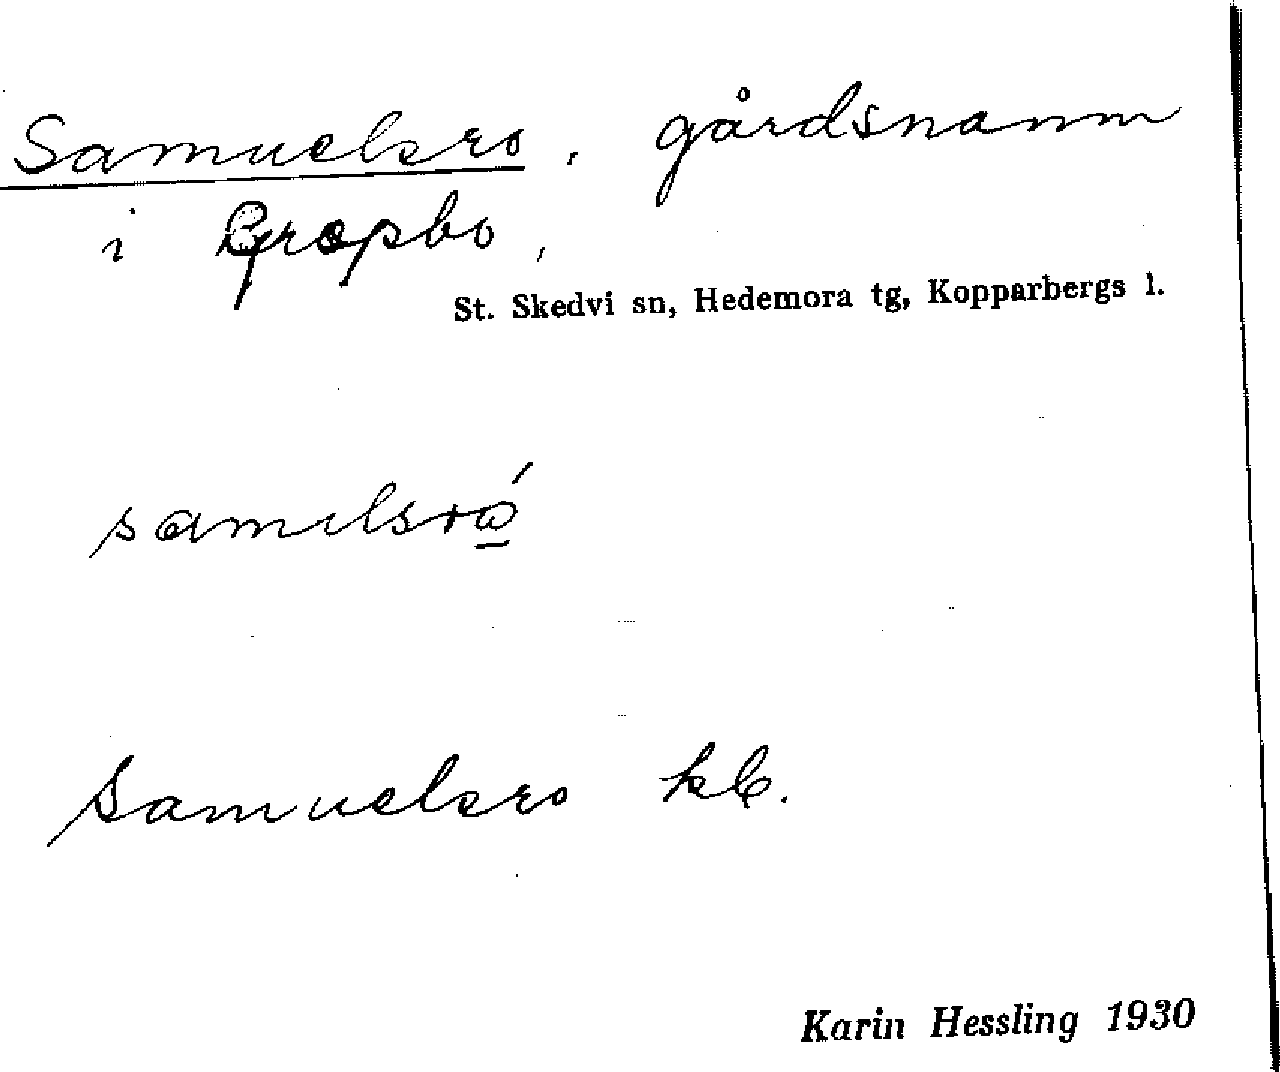 Samuelsro, gårdsnamn
i Gropbo,
St. Skedvi sn, Hedemora tg, Kopparbergs l.
Samuelsro kb.
Karin Hessling 1930